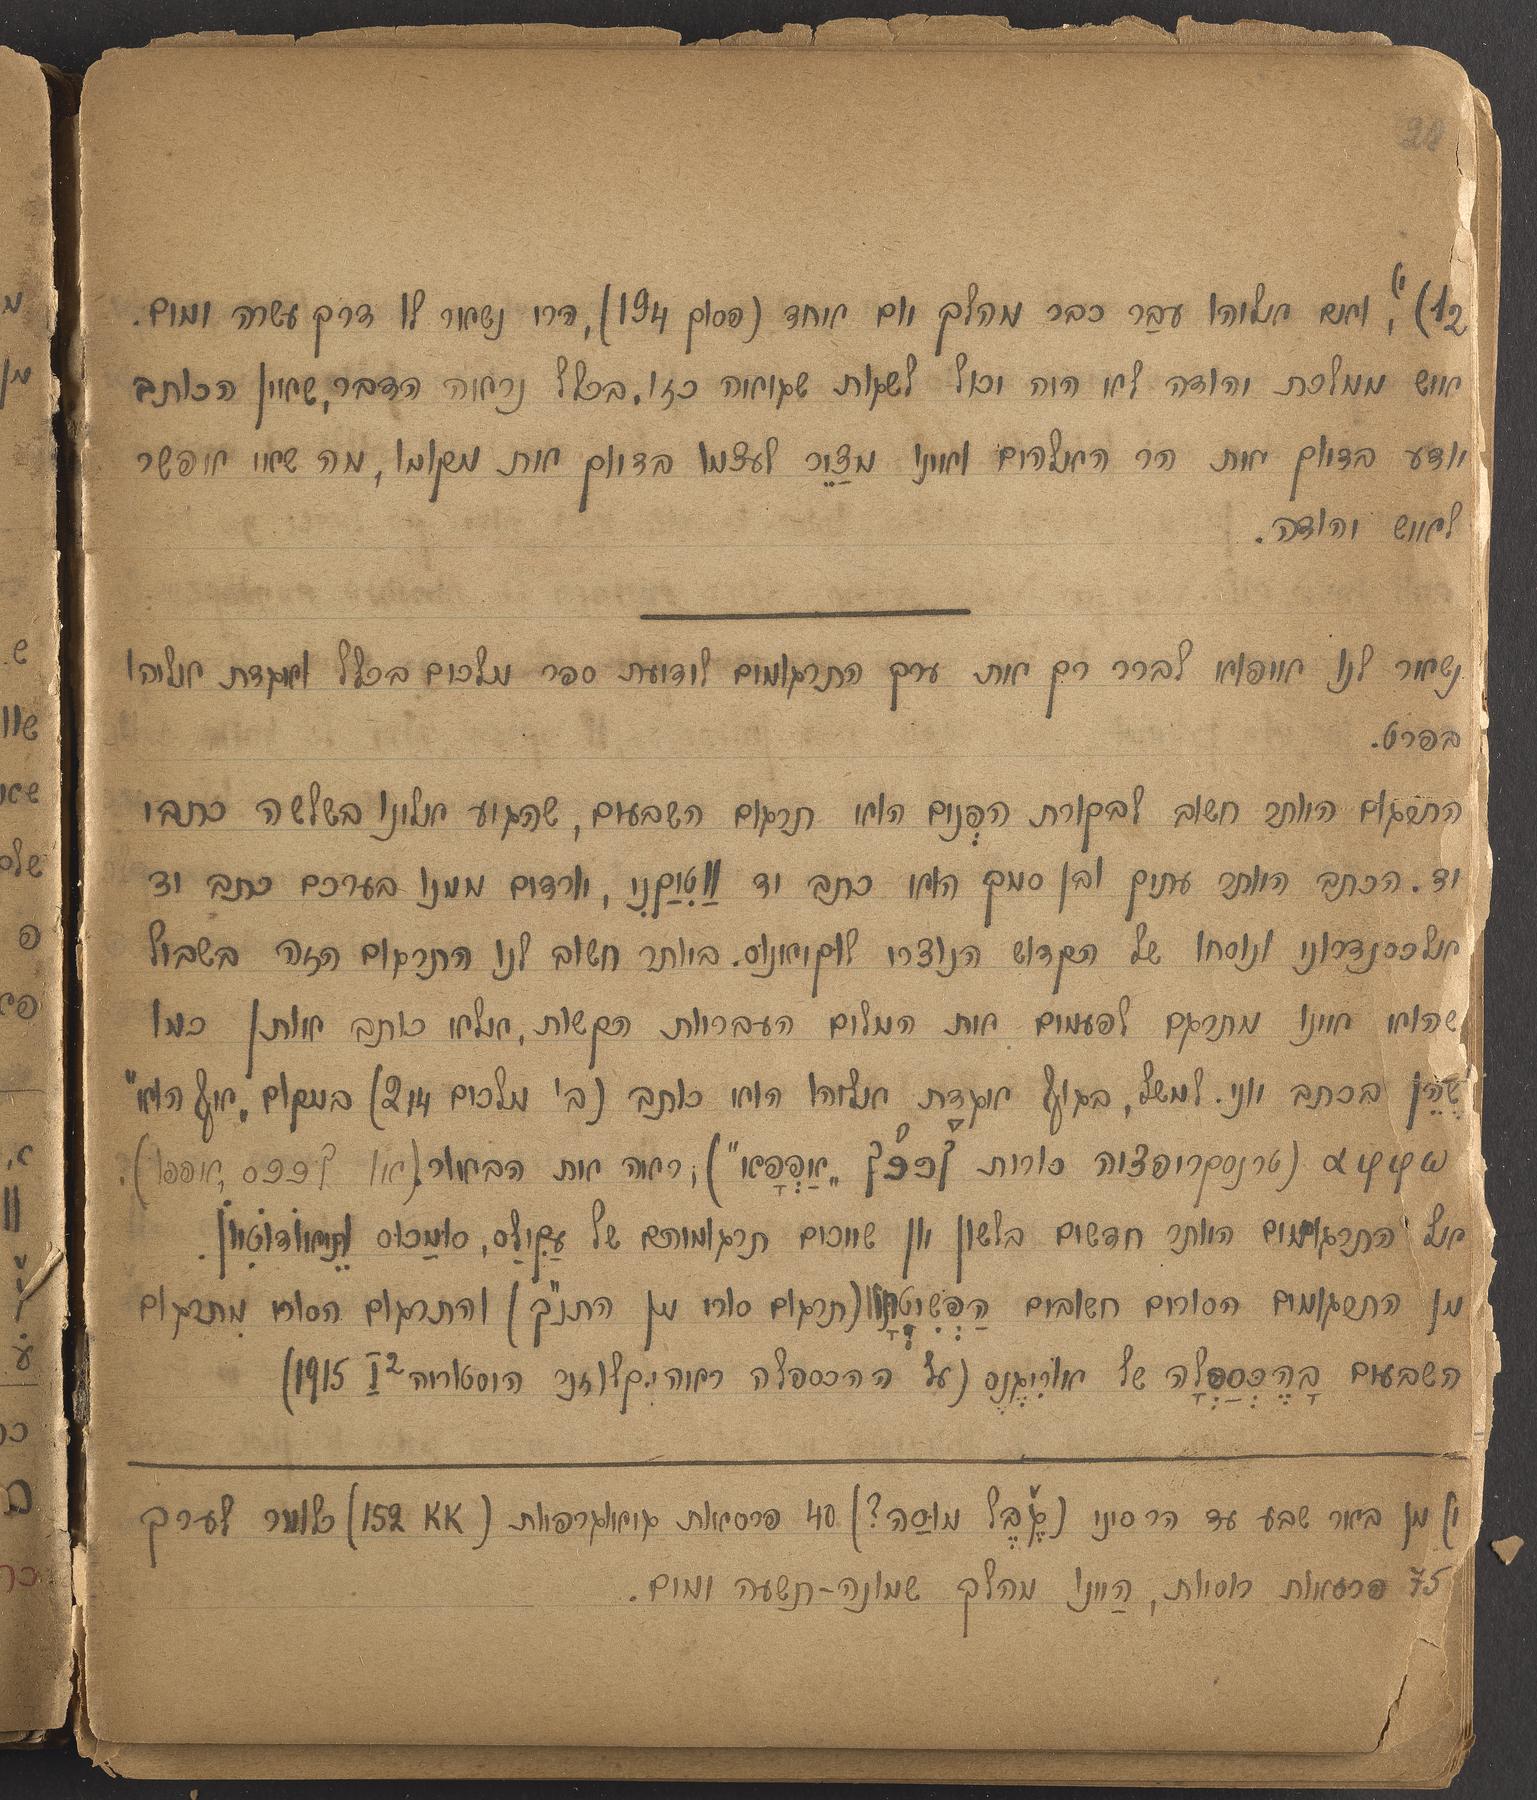 20
12) י), ואם אליהו עבַר כבר מהלך יום אחד (פסוק 194), הרי נשאר לו דרך עשרה ימים.
איש ממלכת יהודה לא היה יכול לשגות שגיאה כזו. בכלל נראה הדבר, שאין הכותב
יודע בדיוק את הר האלהים ואינו מצַיֵר לעצמו בדיוק את מקומו, מה שאי אפשר
לאיש יהודה.
נשאר לנו איפוא לברר רק את ערך התרגומים לידיעת ספר מלכים בכלל ואגדת אליהו
בפרט.
התרגום היותר חשוב לבקורת הפְנים הוא תרגום השבעים, שהגיע אלינו בשלשה כתבי
יד. הכתב היותר עתיק ובן סמך הוא כתב יד וַטִיקַנִי, ירדים ממנו בערכם כתב יד
אלכסנדרוני ונוסחו של הקדוש הנוצרי לוקיאנוס. ביותר חשוב לנו התרגום הזה בשביל
שהוא אינו מתרגם לפעמים את המלים העבריות הקשות, אלא כותב אותן כמו
שֶהֵן בכתב יוני. למשל, בקטע אגדַת אליהו הוא כותב (ב' מלכים 2,14) במקום „אף הוא"
αφφω (טרנסקריפציה כורות „אַפְפָא"), ראה את הבאור (או אפפו)?
אל התרגומים היותר חדשים בלשון יון שייכים תרגומיהם של עַקִילַס, סימַכוס ותֵיאודוטִיון.
מן התרגומים הסורים חשובים הַפְּשִיטְתָא (תרגום סורי מן התנ"ך) והתרגום הסורי מִתרגום
השבעים בָהֶכְּסַפְּלָה של אורִיגֶנֶס (על ההכספלה ראה: קלוזנר היסטוריה I² 1915)
י) מן באר שבע עד הר סיני (גֶ'בֶּל מוּסַה?) 40 פרסאות גיאוגרפיות (KK 152) כלומר לערך
75 פרסאות רוסיות, הַיינו מהלך שמונה-תשעה ימים.